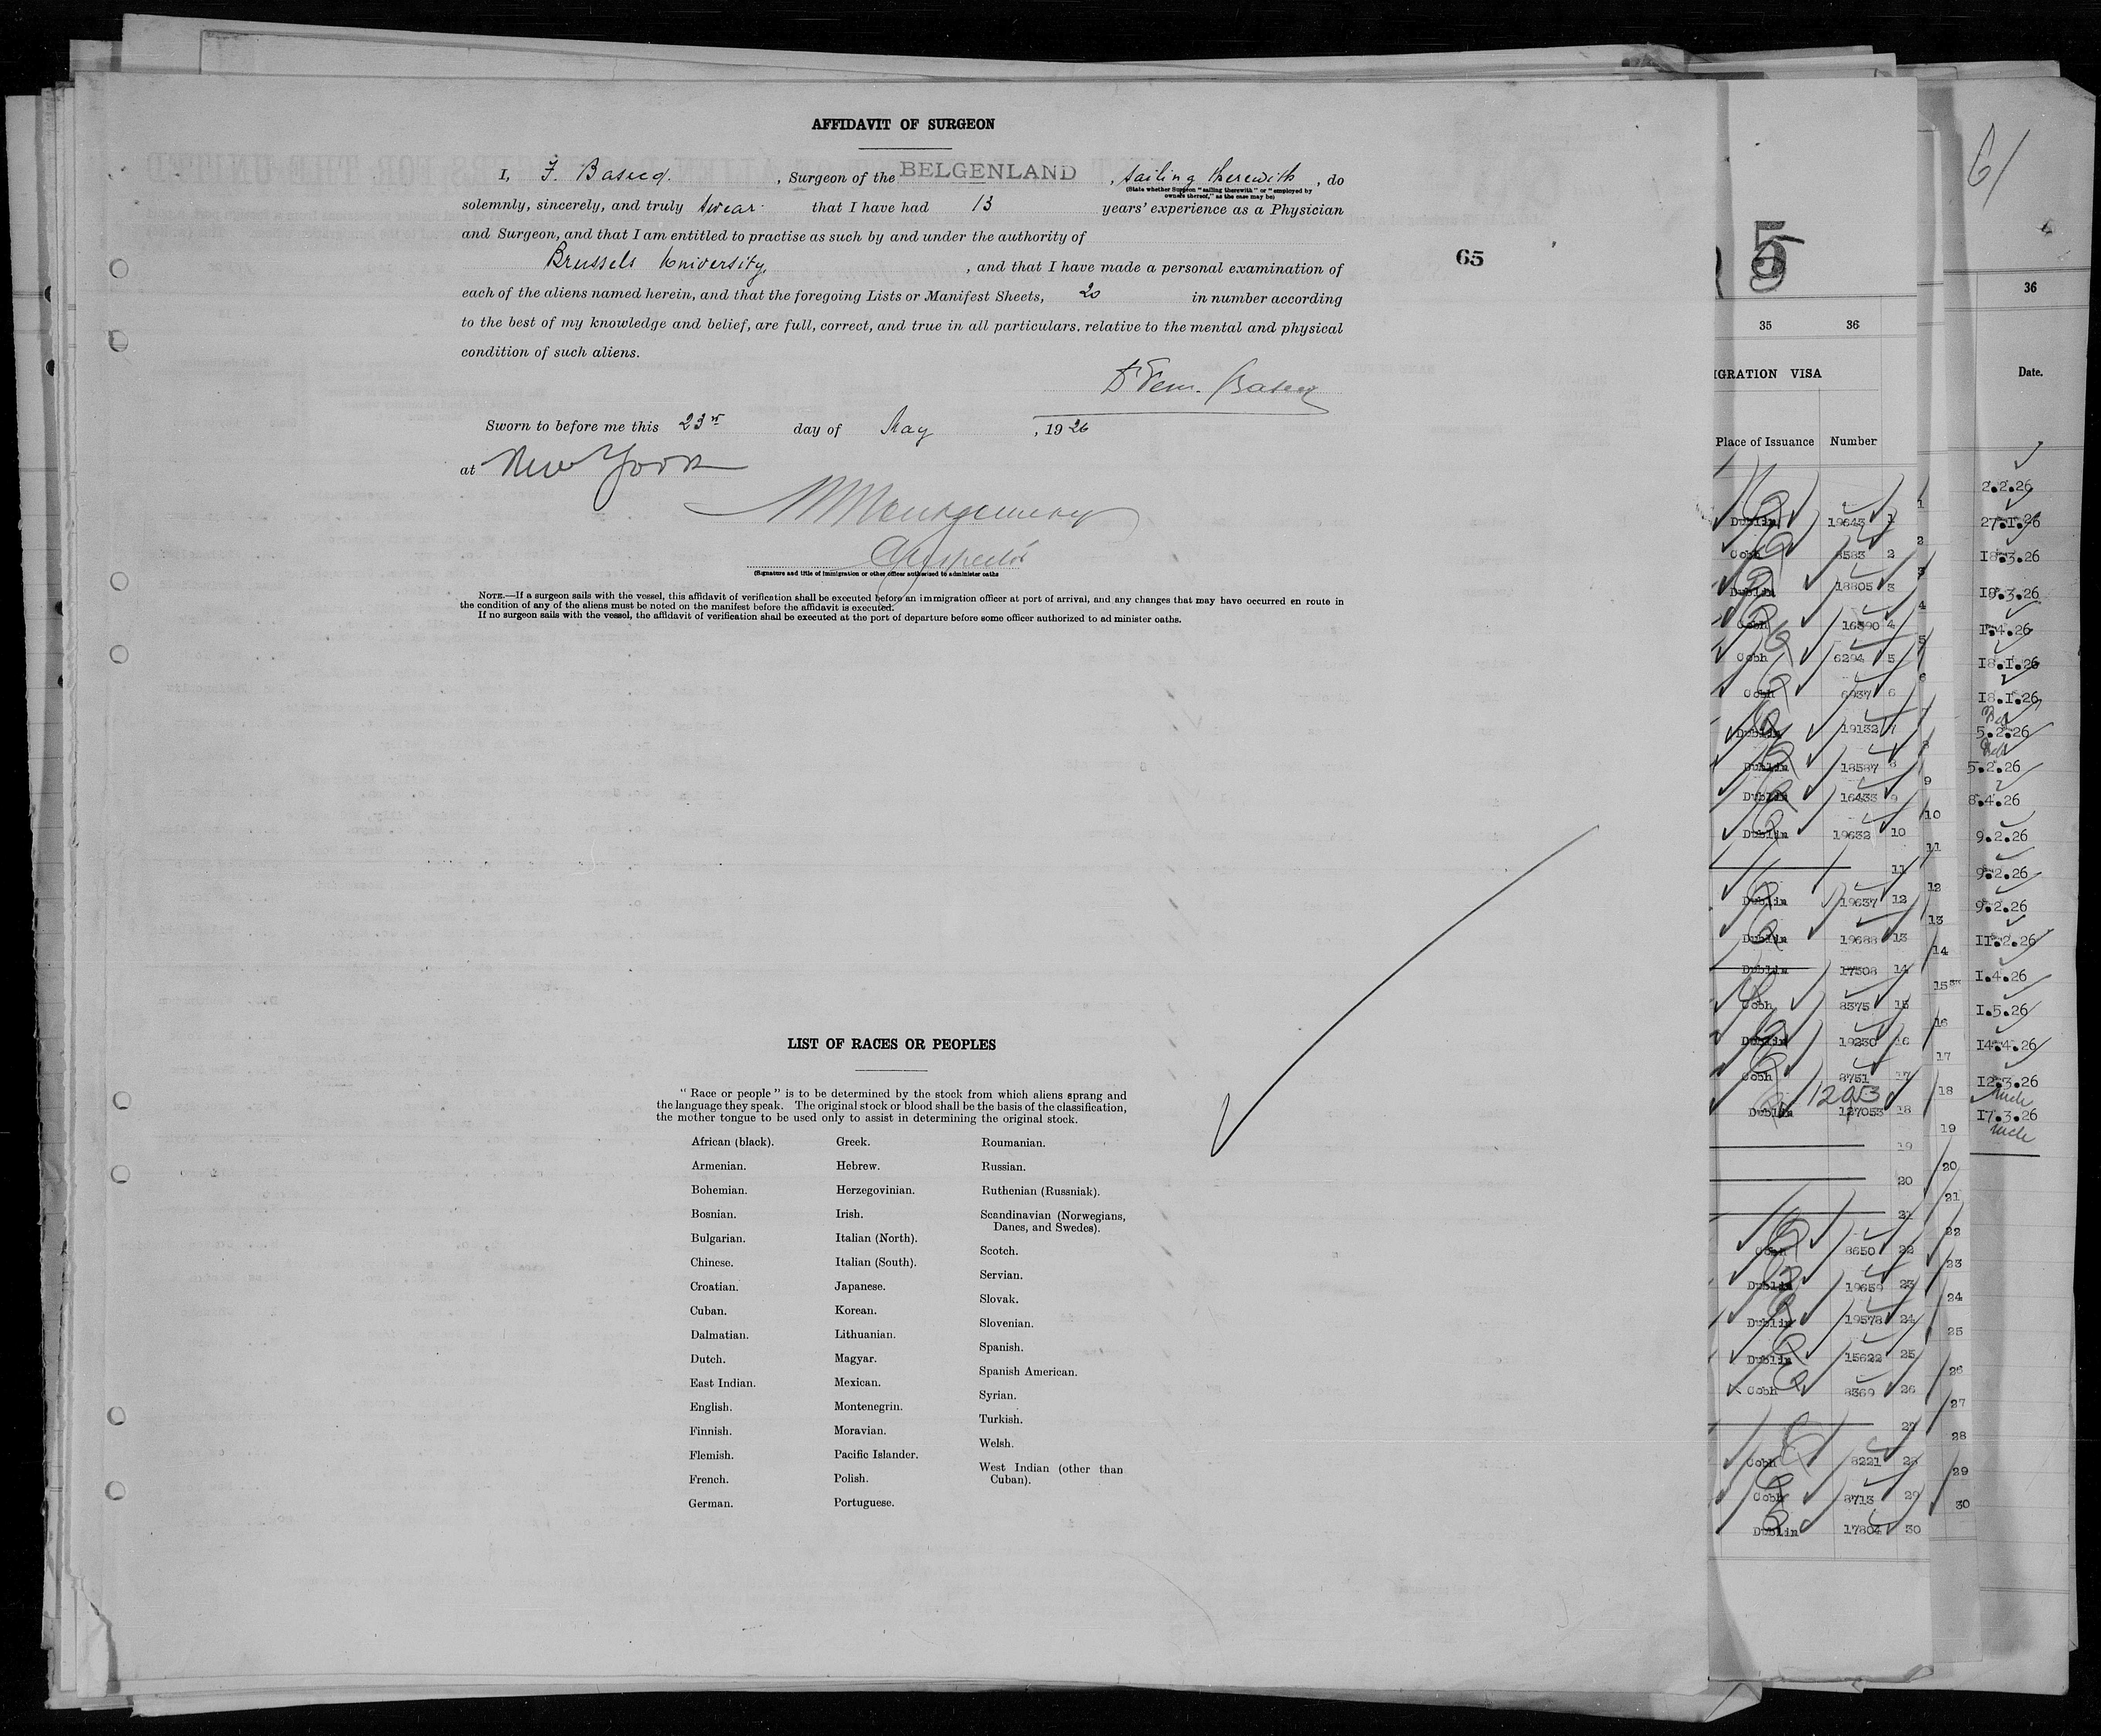 AFFIDAVIT OF SURGEON
I, F. Basecq. , Surgeon of the BELGENLAND , sailing therewith , do
(State whether Surgeon "sailing therewith" or "employed by
owners thereof," as the case may be)
solemnly, sincerely, and truly swear that I have had 13 years' experience as a Physician
and Surgeon, and that I am entitled to practise as such by and under the authority of
Brussels University, , and that I have made a personal examination of
each of the aliens named herein, and that the foregoing Lists or Manifest Sheets, 20 in number according
to the best of my knowledge and belief, are full, correct, and true in all particulars, relative to the mental and physical
condition of such aliens.
Sworn to before me this 23rd day of May , 1926
at New York
Montgomery
Inspector
(Signature and title of immigration or other officer authorized to administer oaths
NOTE.—If a surgeon sails with the vessel, this affidavit of verification shall be executed before an immigration officer at port of arrival, and any changes that may have occurred en route in
the condition of any of the aliens must be noted on the manifest before the affidavit is executed.
If no surgeon sails with the vessel, the affidavit of verification shall be executed at the port of departure before some officer authorized to ad minister oaths.
65
LIST OF RACES OR PEOPLES
"Race or people" is to be determined by the stock from which aliens sprang and
the language they speak. The original stock or blood shall be the basis of the classification,
the mother tongue to be used only to assist in determining the original stock.
African (black).
Armenian.
Bohemian.
Bosnian.
Bulgarian.
Chinese.
Croatian.
Cuban.
Dalmatian.
Dutch.
East Indian.
English.
Finnish.
Flemish.
French.
German.
Greek.
Hebrew.
Herzegovinian.
Irish.
Italian (North).
Italian (South).
Japanese.
Korean.
Lithuanian.
Magyar.
Mexican.
Montenegrin.
Moravian.
Pacific Islander.
Polish.
Portuguese.
Roumanian.
Russian.
Ruthenian (Russniak).
Scandinavian (Norwegians,
Danes, and Swedes).
Scotch.
Servian.
Slovak.
Slovenian.
Spanish.
Spanish American.
Syrian.
Turkish.
Welsh.
West Indian (other than
Cuban).
5
35 36
IGRATION VISA
Place of Issuance Number
Dublin 19643 1
Cobh 8583 2
Dublin 18805 3
Cobh 16390 4
Cobh 6294 5
Cobh 6937 6
Dublin 19132 7
Dublin 18587 8
Dublin 16433 9
Dublin 19632 10
11
Dublin 19637 12
Dublin 19688 13
Dublin 17508 14
Cobh 8375 15
Dublin 19230 16
Cobh 8751 17
Dublin 127053 18
19
20
21
Cobh 8650 22
Dublin 19659 23
Dublin 19578 24
Dublin 15622 25
Cobh 8369 26
27
Cobh 8221 28
Cobh 8713 29
Dublin 17804 30
1
2
3
4
5
6
7
8
9
10
11
12
13
14
15
16
17
18
19
20
21
22
23
24
25
26
27
28
29
30
61
36
Date.
2.2.26
27.1.26
18.3.26
19.3.26
1.4.26
18.1.26
18.1.26
5.2.26
5.2.26
8.4.26
9.2.26
9.2.26
9.2.26
11.2.26
1.4.26
1.5.26
14.4.26
12.3.26
17.3.26